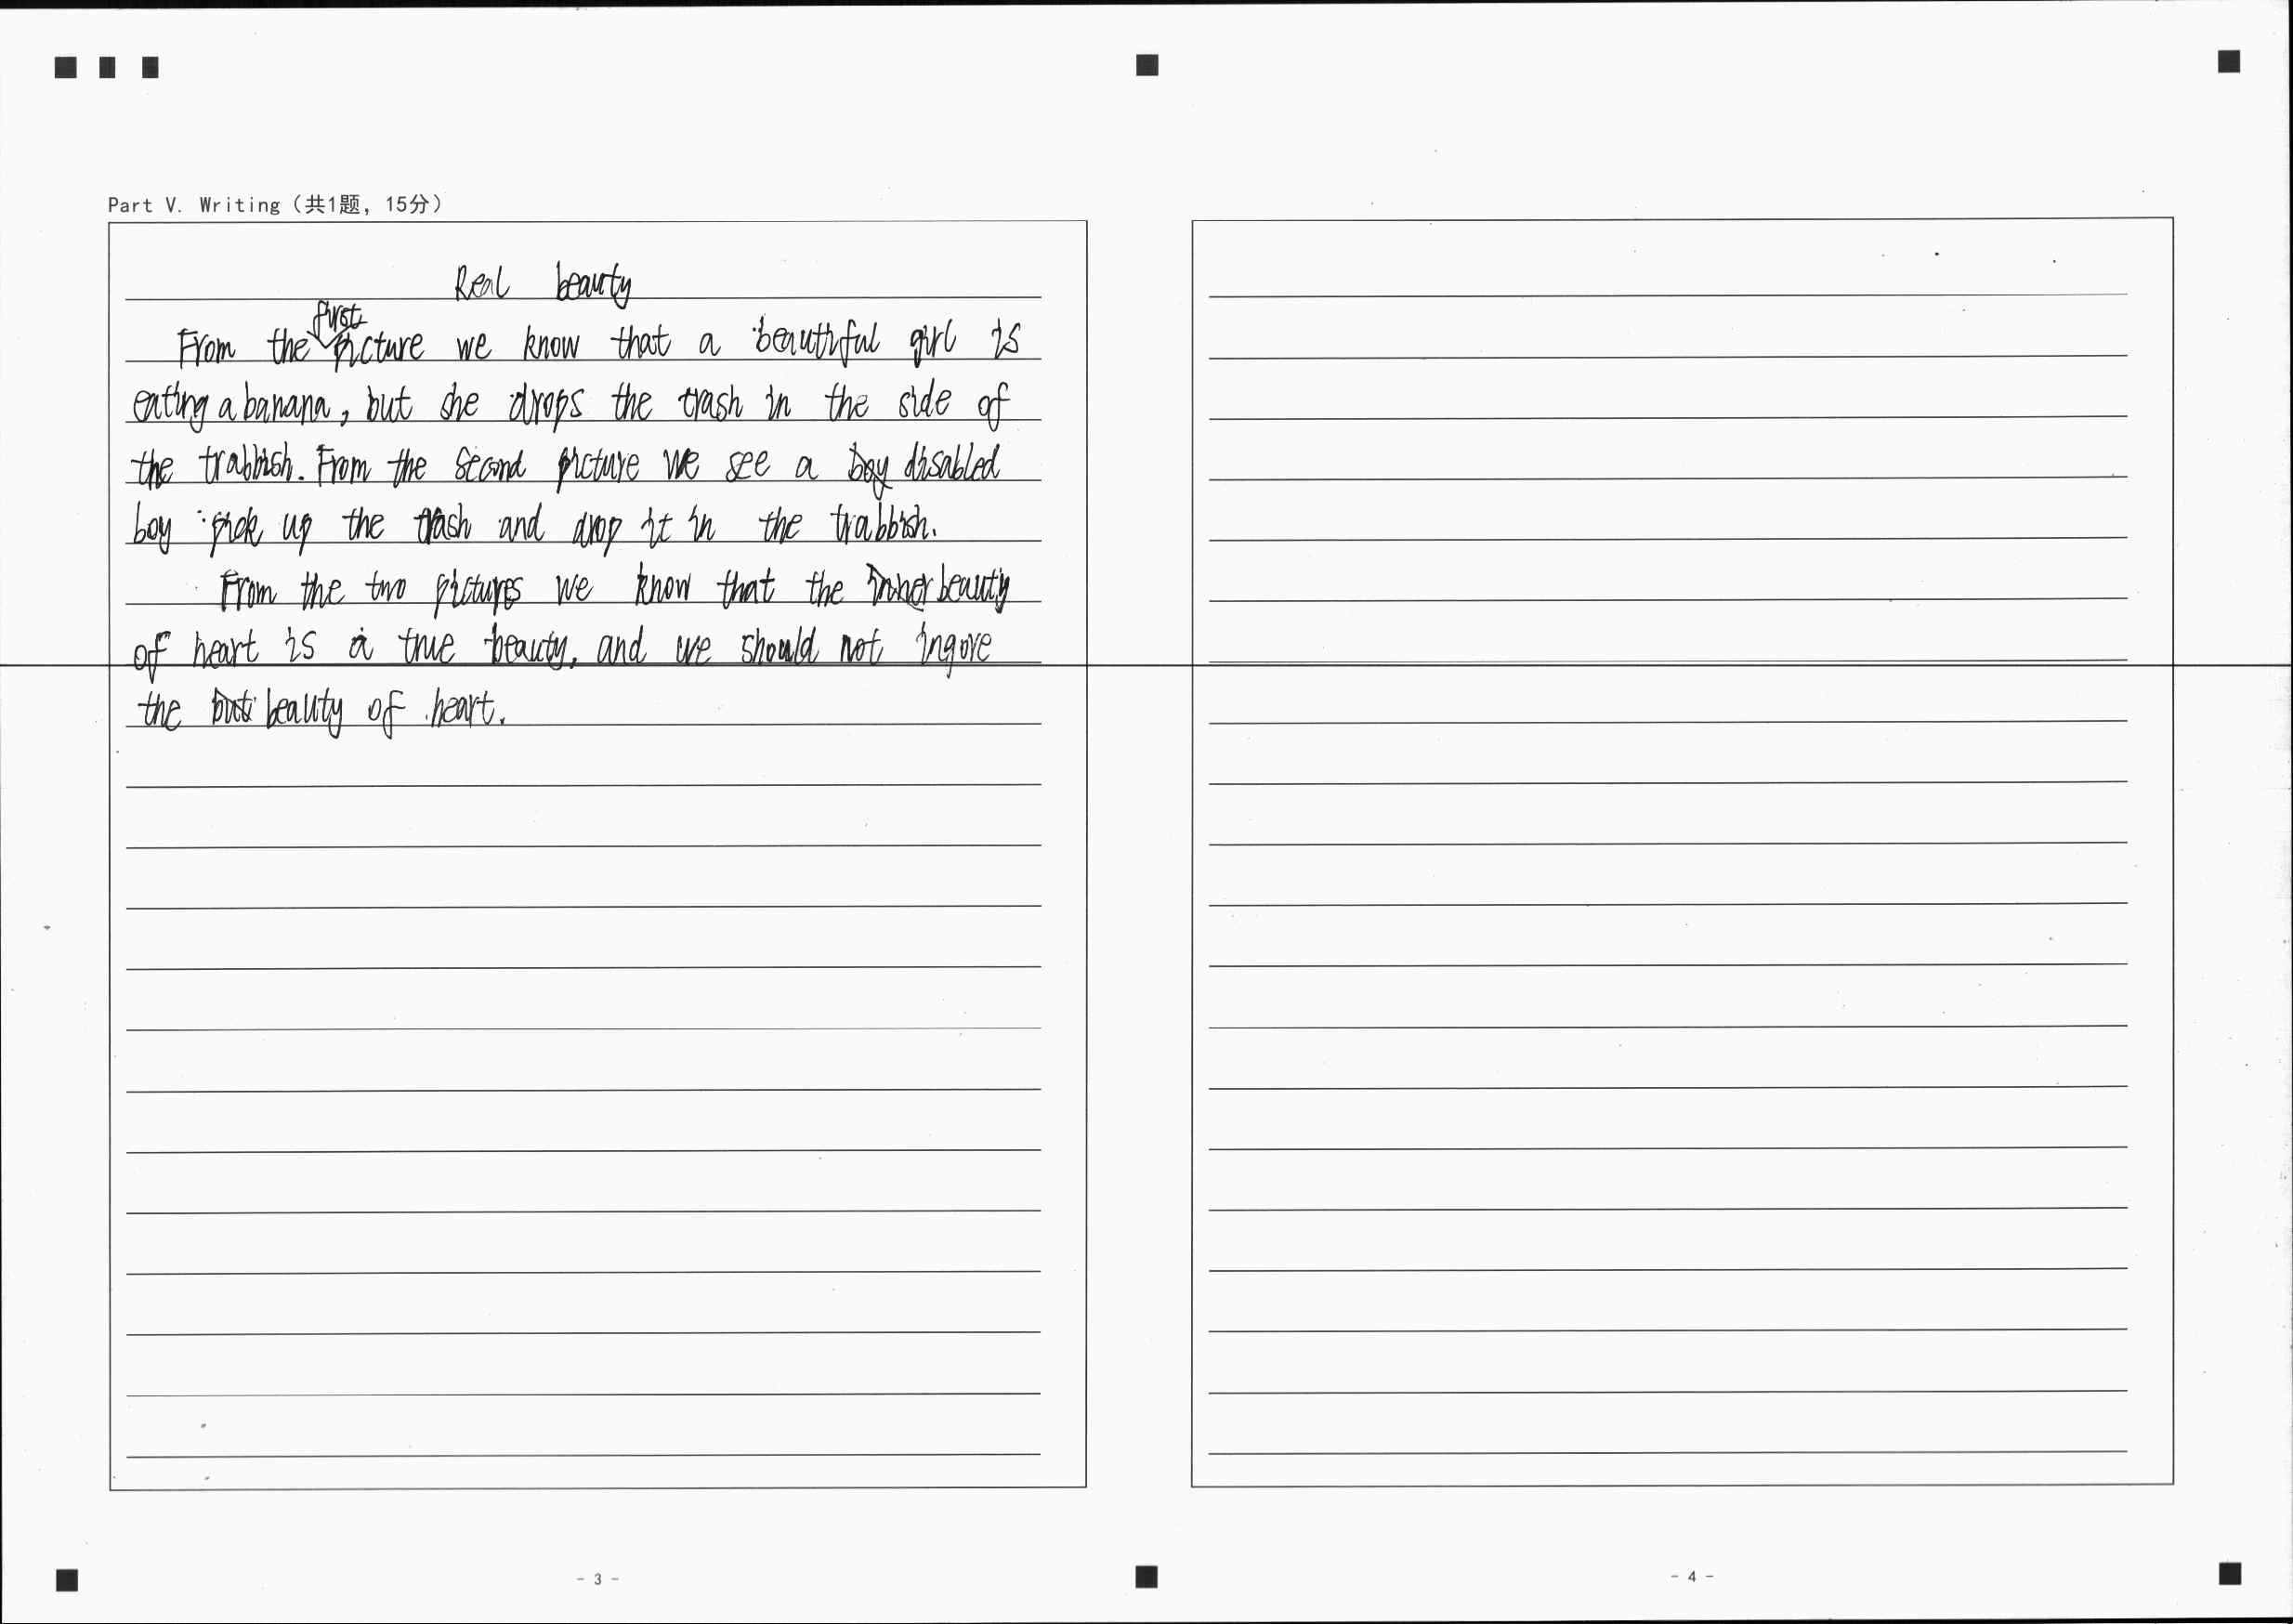 Part V. Writing（共1题, 15分）
Real beauty
From the first picture we know that a beauthful girl is
eating a banana, but she drops the trash in the side of
the trabbish. From the second picture we see a boy disabled
boy pick up the trash and drop it in the trabbish.
From the two pictures we know that the inner beauty
of heart is a true beauty, and we should not ingore
the but beauty of heart.
- 3 -
- 4 -